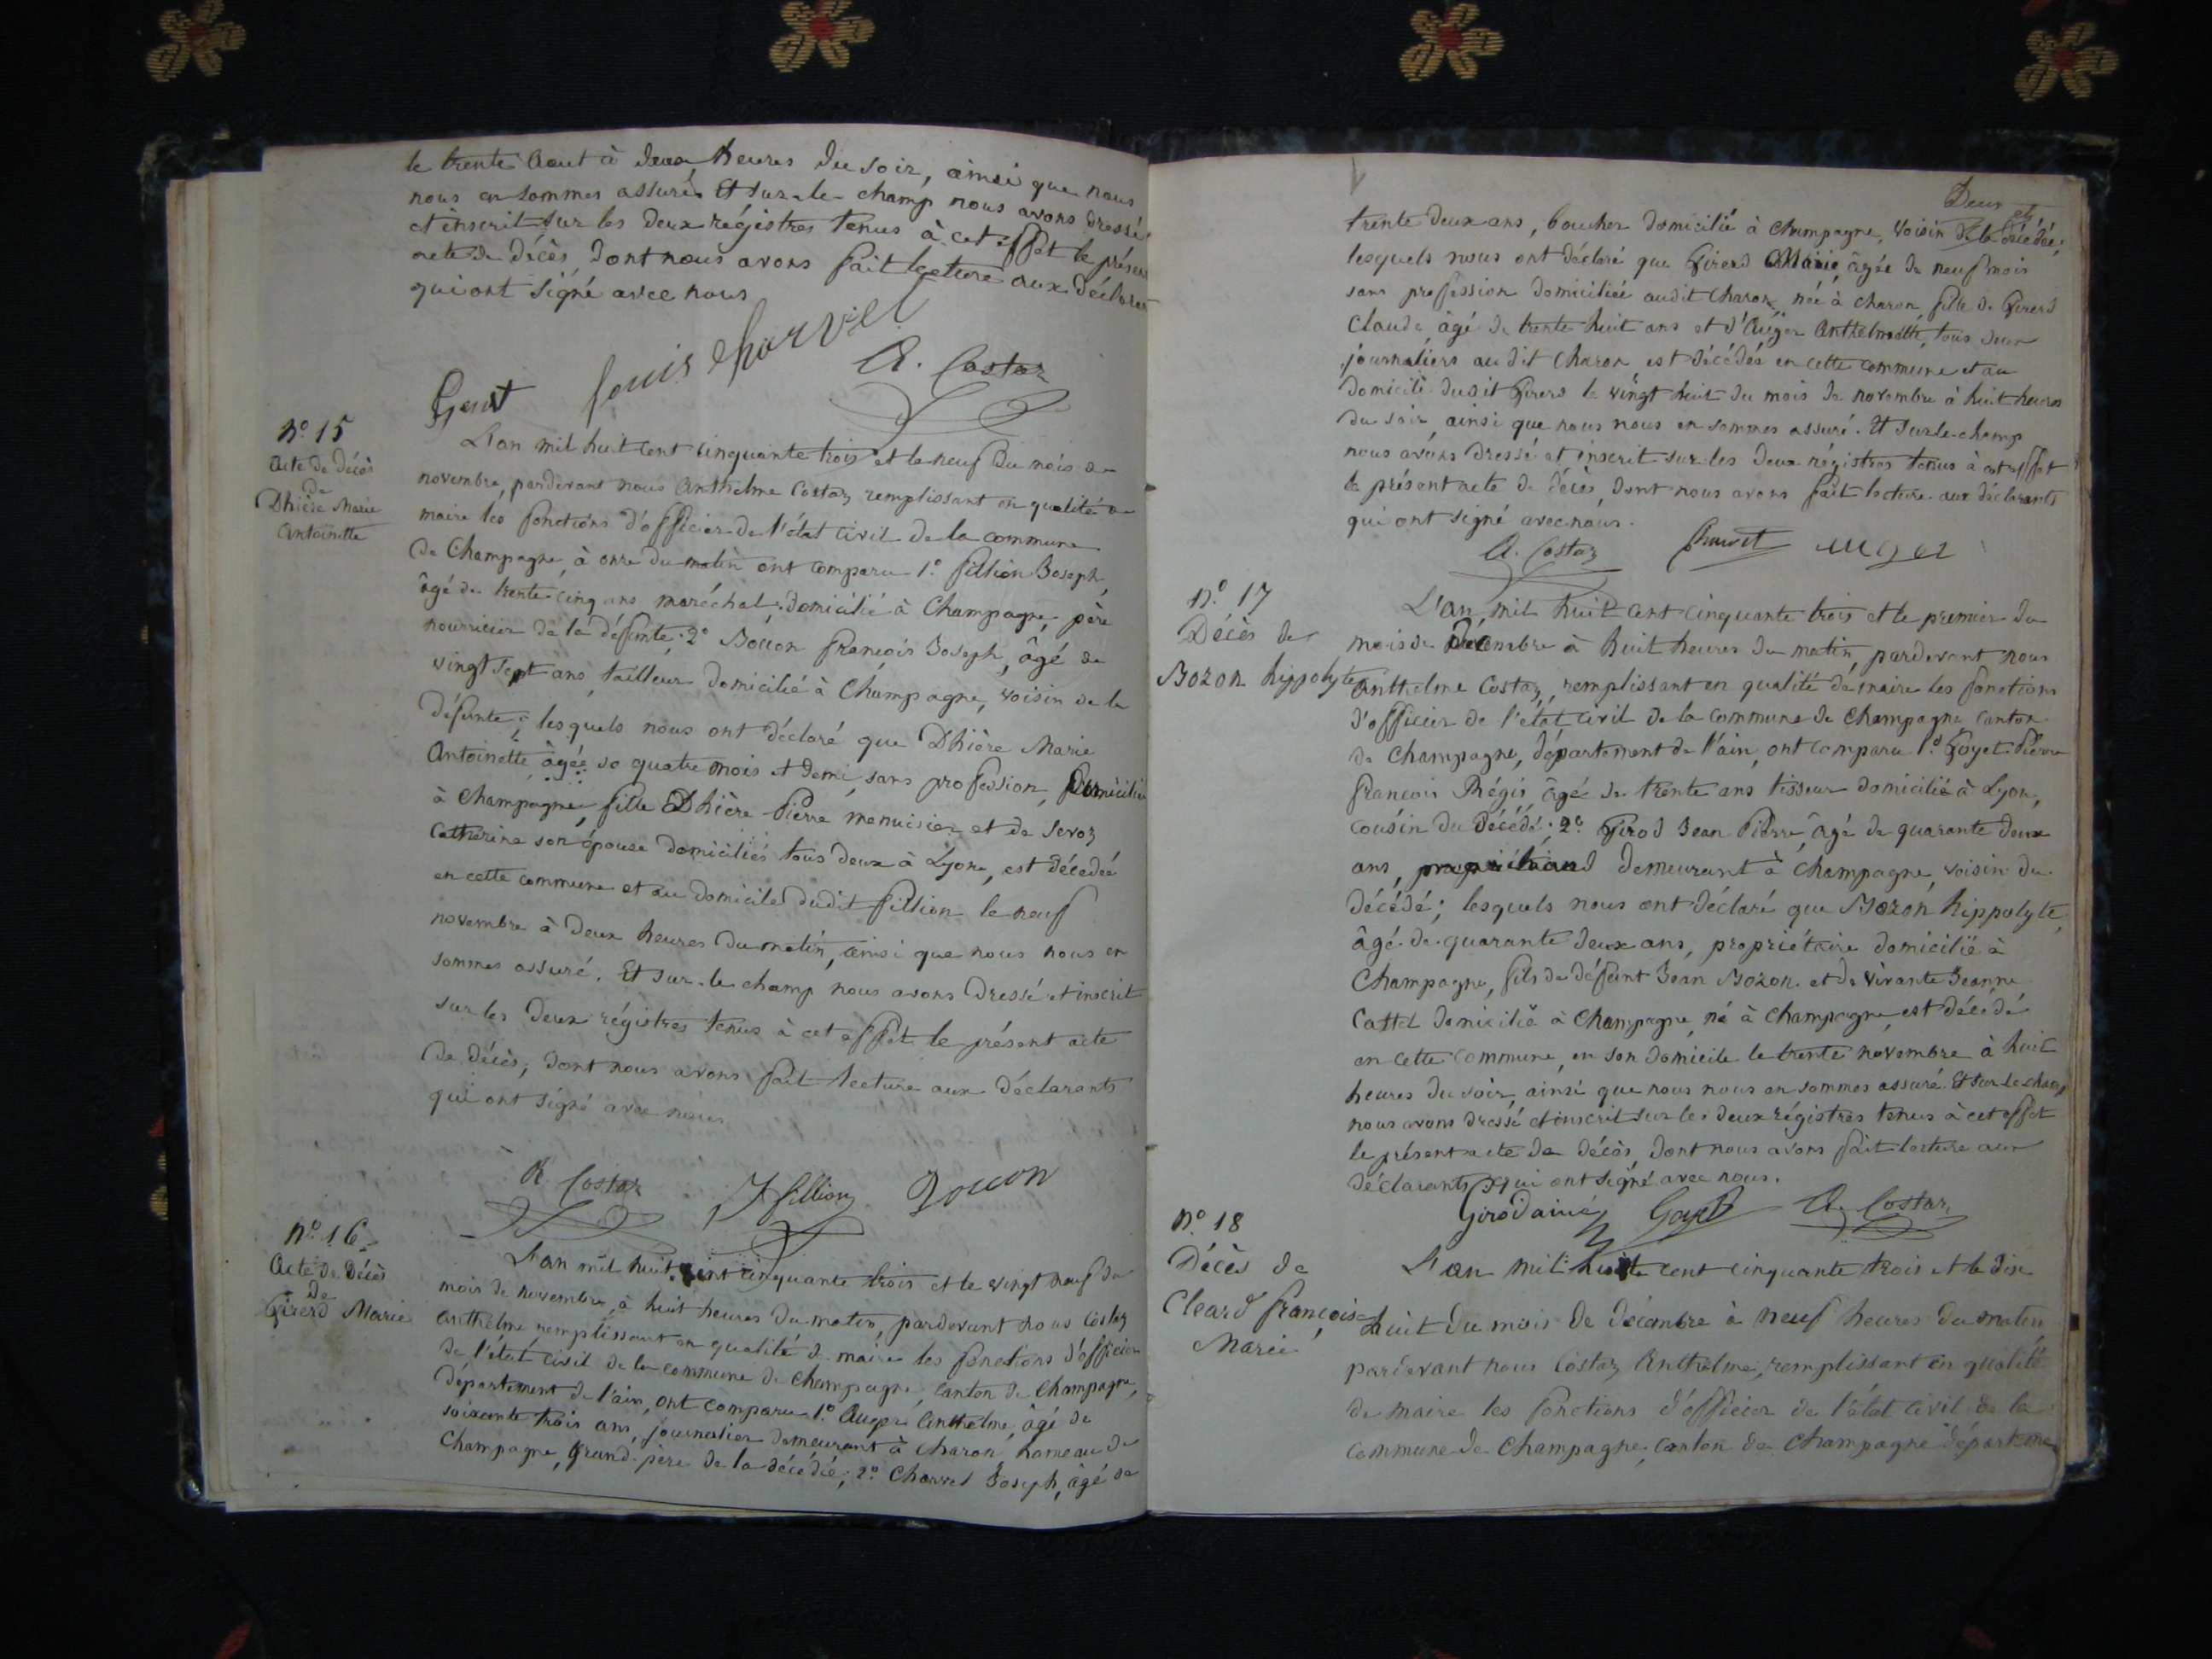 le trente aout à deux heures du soir, ainsi que nous
nous en sommes assuré. Et sur-le-champ nous avons dressé
et inscrit sur les deux régistres tenus à cet effet le présent
acte de décès dont nous avons fait lecture aux déclarants
qui ont signé avec nous
Louis Charvet
A. Costaz
N° 15
Acte de décès
de
Dhière Marie
Antoinette
L'an mil huit cent cinquante trois et le neuf du mois de
novembre, pardevant nous Anthelme Costaz remplissant en qualité de
maire les fonctions d'officier de l'état civil de la commune
de Champagne, à onze du matin ont comparu 1° fillion Joseph,
âgé de trente cinq ans maréchal, domicilié à Champagne, père
nourricier de la défunte; 2° Bouon françois Joseph, âgé de
vingt sept ans, tailleur domicilié à Champagne, voisin de la
défunte; lesquels nous ont déclaré que Dhière Marie
Antoinette âgée de quatre mois et demi, sans profession, domiciliée
à Champagne, fille Dhière Pierre menuisier et de Sevoz
Catherine son épouse domiciliés tous deux à Lyon, est décédée
en cette commune et au domicile dudit fillion le neuf
novembre à deux heures du matin, ainsi que nous nous en
sommes assuré. Et sur-le champ nous avons dressé et inscrit
sur les deux régistres tenus à cet effet le présent acte
de décès, dont nous avons fait lecture aux déclarants
qui ont signé avec nous
A. Costaz J fillion Bouon
N° 16
Acte de décès
de
Girerd Marie
L'an mil huit cent cinquante trois et le vingt neuf du
mois de novembre, à huit heures du matin, pardevant nous Costaz
Anthelme remplissant en qualité de maire les fonctions d'officier
de l'état civil de la commune de Champagne, canton de Champagne,
département de l'ain, ont comparu 1° Auger Anthelme, âgé de
soixante trois ans, journalier demeurant à Charon hameau de
Champagne, grand-père de la décédée; 2° Charvet Joseph, âgé de
Deux et
trente deux ans, boucher domicilié à Champagne, voisin de la décédée;
lesquels nous ont déclaré que Girerd Marie, âgée de neuf mois
sans profession domiciliée audit Charon, née à Charon fille de Girerd
Claude, âgé de trente huit ans et d'Auger Anthelmette, tous deux
journaliers audit Charon est décédée en cette commune et au
domicile dudit Girerd le vingt huit du mois de novembre à huit heures
du soir, ainsi que nous nous en sommes assuré. Et sur-le-champ
nous avons dressé et inscrit sur les deux régistres tenus à cet effet
le présent acte de décès, dont nous avons fait lecture aux déclarants
qui ont signé avec nous.
A. Costaz Charvet auger
N° 17
Décès de
Bozon hippolyte
L'an mil huit cent cinquante trois et le premier du
mois de Décembre à huit heures du matin, pardevant nous
Anthelme Costaz, remplissant en qualité de maire les fonctions
d'officier de l'état civil de la commune de Champagne canton
de Champagne, département de l'ain, ont comparu 1° Goyet Pierre
françois Régis âgé de trente ans tisseur domicilié à Lyon,
cousin du décédé; 2° Girod Jean Pierre, âgé de quarante deux
ans, demeurant à Champagne, voisin du
décédé; lesquels nous ont déclaré que Bozon hippolyte,
âgé de quarante deux ans, propriétaire domicilié à
Champagne, fils de défunt Jean Bozon et de vivante Jeanne
Cattel domicilié à Champagne, né à Champagne est décédé
en cette commune, en son domicile le trente novembre à huit
heures du soir, ainsi que nous nous en sommes assuré. Et sur-le-champ
nous avons dressé et inscrit sur les deux régistres tenus à cet effet
le présent acte de décès, dont nous avons fait lecture aux
déclarants qui ont signé avec nous.
Girod ainé Goyet A. Costaz
N° 18
Décès de
Cleard françoise
Marie
L'an mil huit cent cinquante trois et le dix
huit du mois de décembre à neuf heures du matin
pardevant nous Costaz Anthelme, remplissant en qualité
de maire les fonctions d'officier de l'état civil de la
commune de Champagne, canton de Champagne département